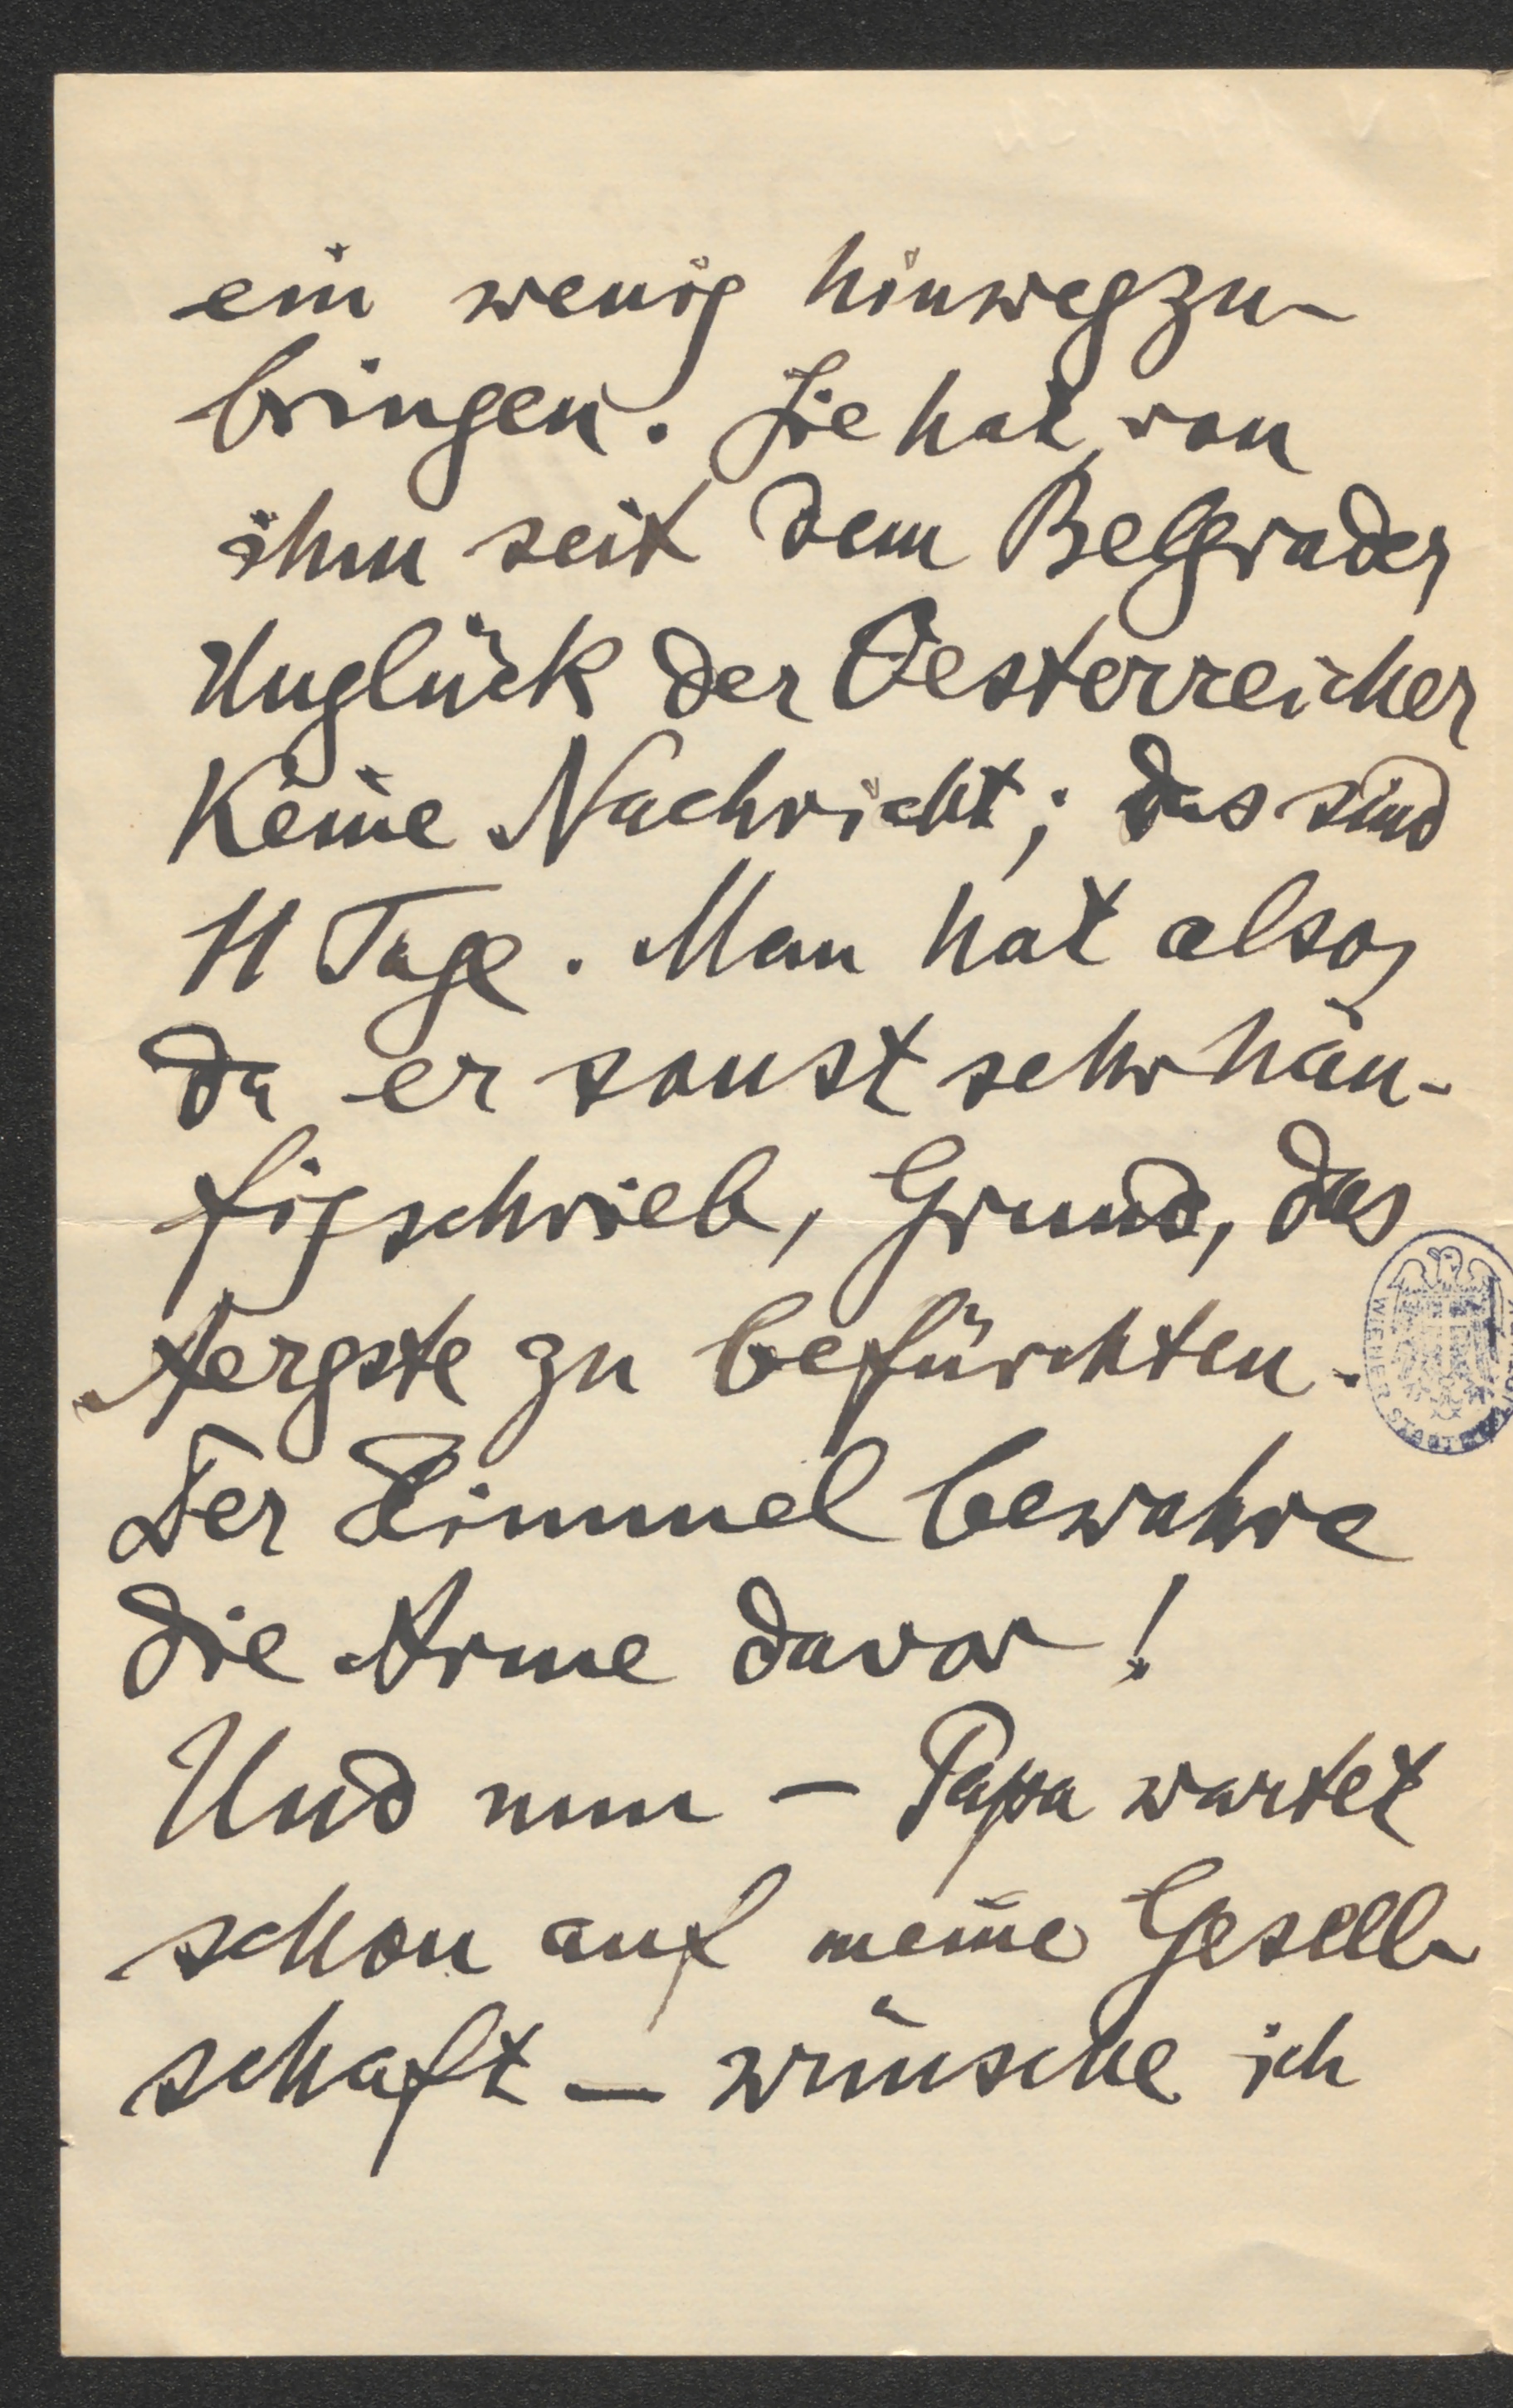 ein wenig hinwegzu-
bringen. Sie hat von
ihm seit dem Belgrader
Unglück der Oesterreicher
keine Nachricht; das sind
11 Tage. Man hat also,
da er sonst sehr häu-
fig schrieb, Grund, das
Aergste zu befürchten.
Der Himmel bewahre
die Arme davor!
Und nun — Papa wartet
schon auf meine Gesell-
schaft — wünsche ich
WIENER STADT